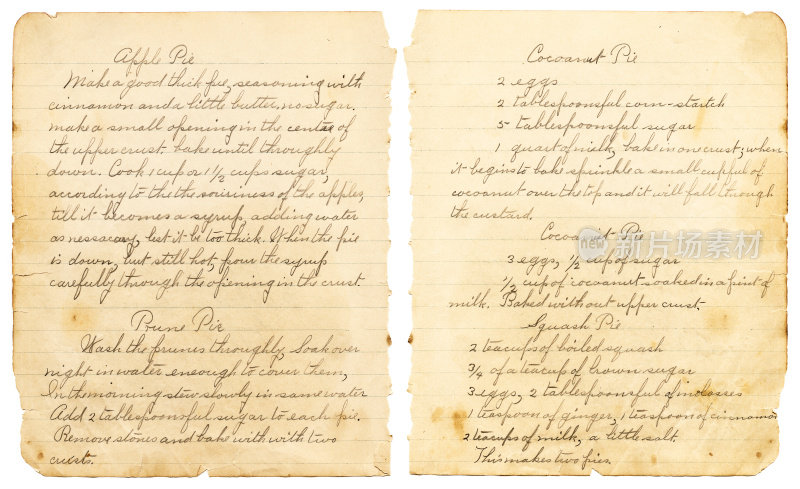 Apple Pie
Make a good thick pie, seasoning with
cinnamon and a little butter, no sugar.
make a small opening in the centre of
the upper crust. bake until throughly
down. Cook 1 cup or 1 1/2 cups sugar,
according to the the souriness of the apples,
till it becomes a syrup, adding water
as nessacary, lest it be too thick. When the pie
is down, but still hot, pour the syrup
carefully through the opening in the crust.
Prune Pie
Wash the prunes throughly, Soak over
night in water enough to cover them,
In the morning stew slowly in same water
Add 2 tablespoonsful sugar to each pie.
Remove stones and bake with with two
crusts.
Cocoanut Pie
2 eggs
2 tablespoonsful corn-starch
5 tablespoonsful sugar
1 quart of milk, bake in one crust; when
it begins to bake sprinkle a small cupful of
cocoanut over the top and it will fall through
the custard.
Cocoanut Pie
3 eggs, 1/2 cup of sugar
1/2 cup of cocoanut soaked in a pint of
milk. Baked without upper crust.
Squash Pie
2 teacups of boiled squash
3/4 of a teacup of brown sugar
3 eggs, 2 tablespoonsful of molasses
1 teaspoon of ginger, 1 teaspoon of cinnamon
2 teacups of milk, a little salt.
This makes two pies.
new 新片场素材